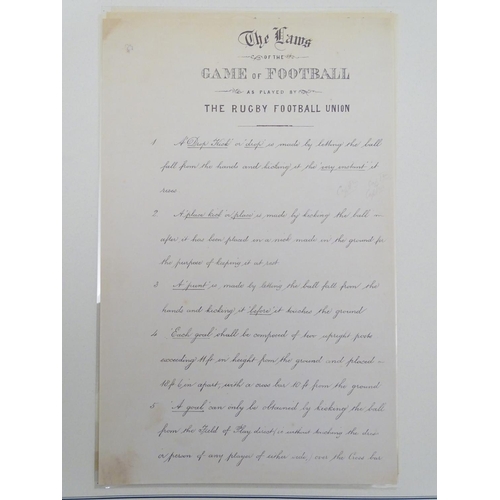 The Laws
OF THE
GAME OF FOOTBALL
AS PLAYED BY
THE RUGBY FOOTBALL UNION
1 A Drop Kick or drop is made by letting the ball
fall from the hands and kicking it the very instant it
rises
2 A place kick or place is made by kicking the ball
after it has been placed in a nick made in the ground for
the purpose of keeping it at rest
3 A punt is made by letting the ball fall from the
hands and kicking it before it touches the ground
4 Each goal shall be composed of two upright posts
exceeding 11 ft in height from the ground and placed
18 ft 6 in apart, with a cross bar 10 ft from the ground
5 A goal can only be obtained by kicking the ball
from the Field of Play direct, (i.e without touching the dress
or person of any player of either side, over the Cross bar